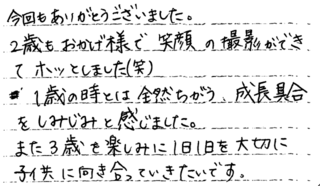 今回もありがとうございました。
2歳もおかげ様で笑顔の撮影ができ
てホッとしました(笑)
1歳の時とは全然ちがう、成長具合
をしみじみと感じました。
また3歳を楽しみに1日1日を大切に
子供に向き合っていきたいです。